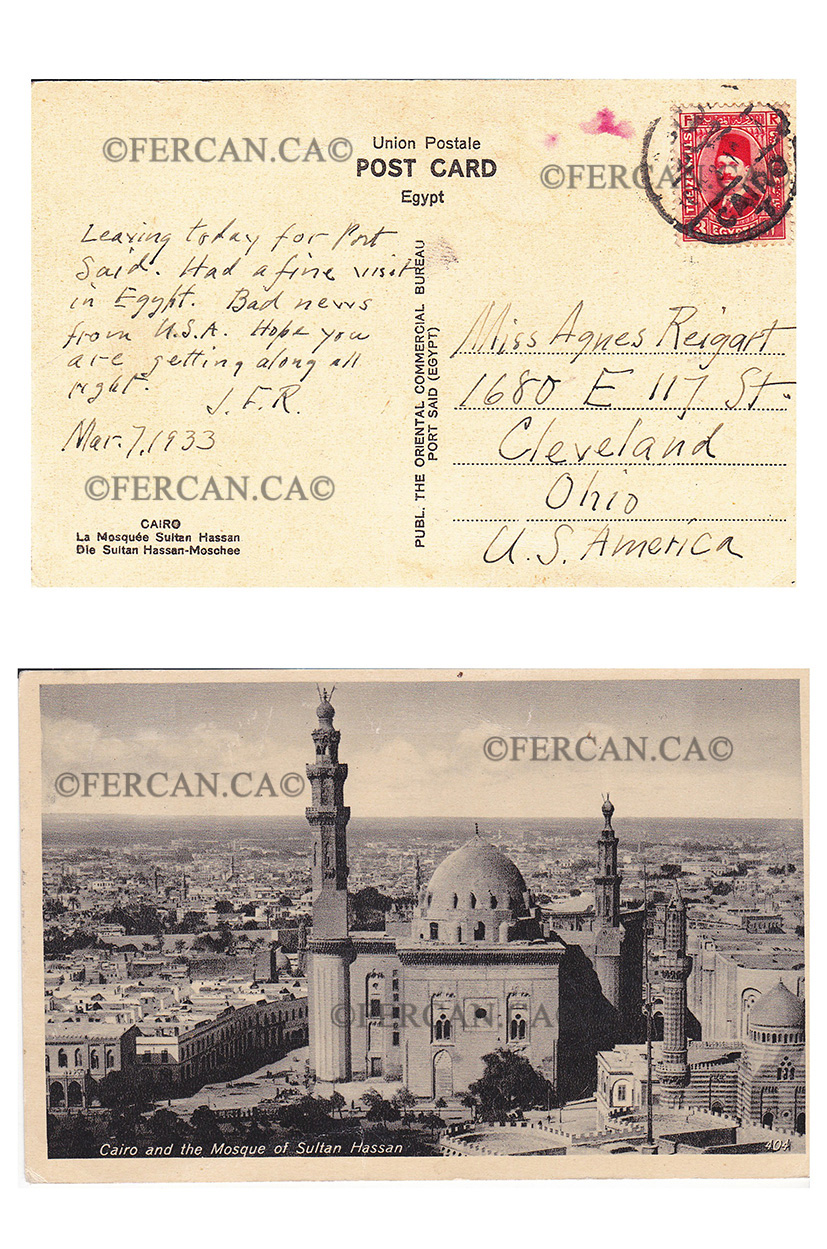 ©FERCAN.CA©
Union Postale
POST CARD
Egypt
©FERCAN.CA©
POSTES
EGYPTE
CAIRO
Leaving today for Port
Said. Had a fine visit
in Egypt. Bad news
from U.S.A. Hope you
are getting along all
right.
J. F. R.
Mar. 7, 1933
©FERCAN.CA©
CAIRO
La Mosquée Sultan Hassan
Die Sultan Hassan-Moschee
PUBL. THE ORIENTAL COMMERCIAL BUREAU
PORT SAID (EGYPT)
Miss Agnes Reigart
1680 E 117 St.
Cleveland
Ohio
U.S. America
©FERCAN.CA©
©FERCAN.CA©
©FERCAN.CA©
Cairo and the Mosque of Sultan Hassan
404